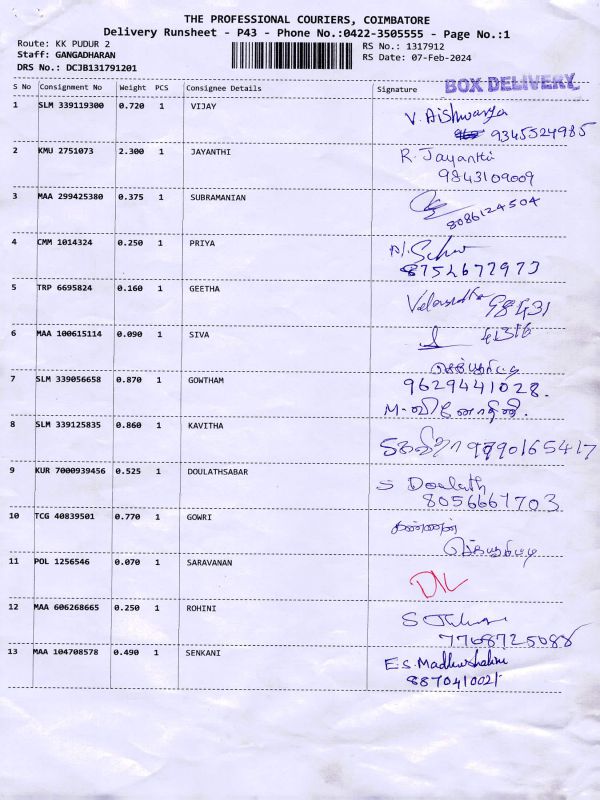 THE PROFESSIONAL COURIERS, COIMBATORE
Delivery Runsheet - P43 - Phone No.:0422-3505555 - Page No.:1
Route: KK PUDUR 2
RS No.: 1317912
Staff: GANGADHARAN
RS Date: 07-Feb-2024
DRS No.: DCJB131791201
BOX DELIVERY
S No Consignment No Weight PCS Consignee Details Signature
1 SLM 339119300 0.720 1 VIJAY V. Aishwarya
9345524985
2 KMU 2751073 2.300 1 JAYANTHI R. Jayanthi
9843109009
3 MAA 299425380 0.375 1 SUBRAMANIAN
8086124504
4 CMM 1014324 0.250 1 PRIYA
8754677973
5 TRP 6695824 0.160 1 GEETHA 98431
6 MAA 100615114 0.090 1 SIVA 41316
7 SLM 339056658 0.870 1 GOWTHAM
9629441028.
8 SLM 339125835 0.860 1 KAVITHA
9790165417
9 KUR 7000939456 0.525 1 DOULATHSABAR S Doulath
8056667703
10 TCG 40839501 0.770 1 GOWRI கண்ணன்
11 POL 1256546 0.070 1 SARAVANAN
12 MAA 606268665 0.250 1 ROHINI
7708725088
13 MAA 104708578 0.490 1 SENKANI E.S. Madhushalini
8870410021